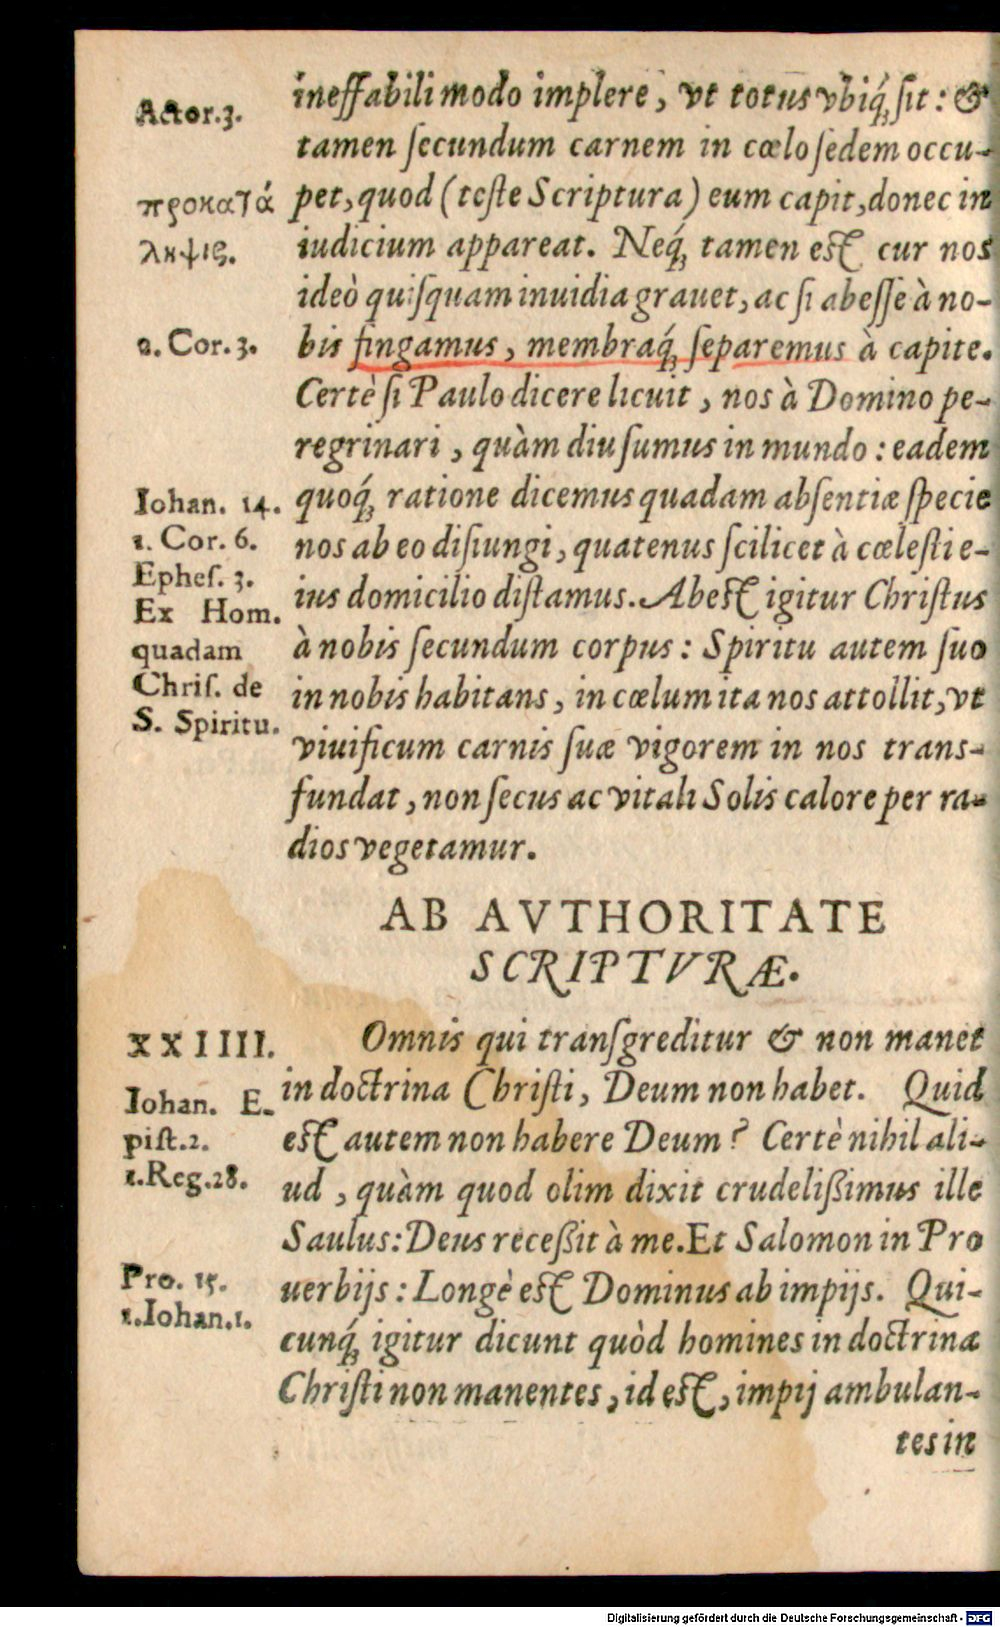 Actor.3.
προκατά
ληψις.
2. Cor. 3.
Iohan. 14.
1. Cor. 6.
Ephes. 3.
Ex Hom.
quadam
Chris. de
S. Spiritu.
ineffabili modo implere, vt totus vbiq́; sit: &
tamen secundum carnem in cœlo sedem occu-
pet, quod (teste Scriptura) eum capit, donec in
iudicium appareat. Neq́; tamen est cur nos
ideò quisquam inuidia grauet, ac si abesse à no-
bis fingamus, membraq́; separemus à capite.
Certè si Paulo dicere licuit, nos à Domino pe-
regrinari, quàm diu sumus in mundo: eadem
quoq́; ratione dicemus quadam absentiæ specie
nos ab eo disiungi, quatenus scilicet à cœlesti e-
ius domicilio distamus. Abest igitur Christus
à nobis secundum corpus: Spiritu autem suo
in nobis habitans, in cœlum ita nos attollit, vt
viuificum carnis suæ vigorem in nos trans-
fundat, non secus ac vitali Solis calore per ra-
dios vegetamur.
AB AVTHORITATE
SCRIPTVRÆ.
XXIIII.
Iohan. E-
pist.2.
1.Reg.28.
Pro. 15.
1.Iohan.1.
Omnis qui transgreditur & non manet
in doctrina Christi, Deum non habet. Quid
est autem non habere Deum? Certè nihil ali-
ud, quàm quod olim dixit crudelißimus ille
Saulus: Deus receßit à me. Et Salomon in Pro
uerbijs: Longè est Dominus ab impijs. Qui-
cunq́; igitur dicunt quòd homines in doctrina
Christi non manentes, id est, impij ambulan-
tes in
Digitalisierung gefördert durch die Deutsche Forschungsgemeinschaft - DFG